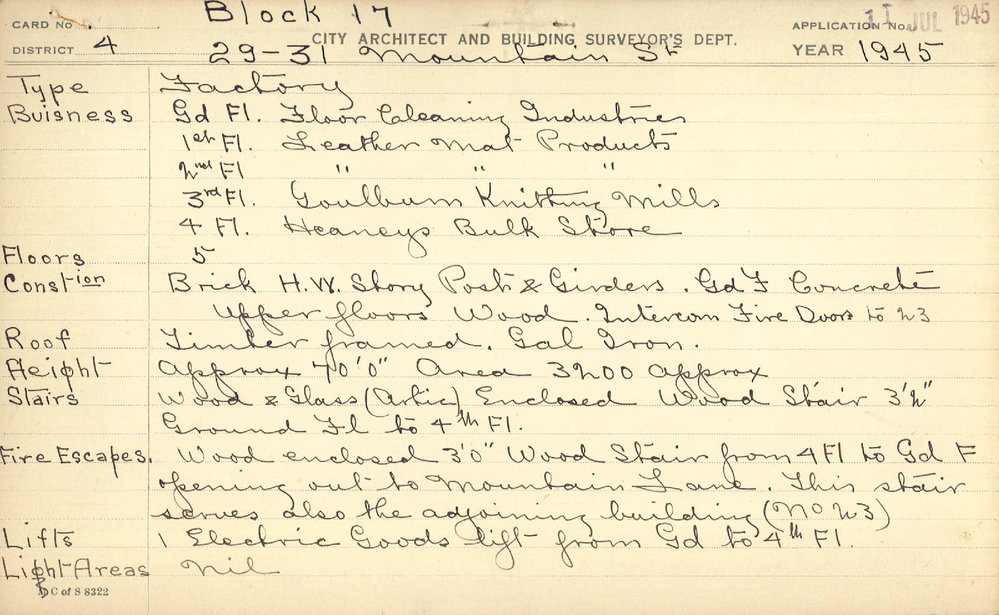 CARD No. Block 17 APPLICATION No. 11 JUL 1945
CITY ARCHITECT AND BUILDING SURVEYOR'S DEPT.
DISTRICT 4 29-31 Mountain St YEAR 1945
Type Factory
Buisness Gd Fl. Floor Cleaning Industries
1st Fl. Leather Mat Products
2nd Fl " "
3rd Fl. Goulburn Knitting Mills
4 Fl. Heaneys Bulk Store
Floors 5
Constion Brick H.W. Story Post & Girders. Gd F Concrete
Upper floors Wood. Intercom Fire Doors to 23
Roof Timber framed. Gal Iron.
Height Approx 70'0" Area 3200 approx
Stairs Wood & Glass (Artic) Enclosed Wood Stair 3'2"
Ground Fl to 4th Fl.
Fire Escapes. Wood enclosed 3'0" Wood Stair from 4 Fl to Gd F
opening out to Mountain Lane. This stair
serves also the adjoining building (No 23)
Lifts 1 Electric Goods lift from Gd to 4th Fl.
Light Areas Nil
C of S 8322